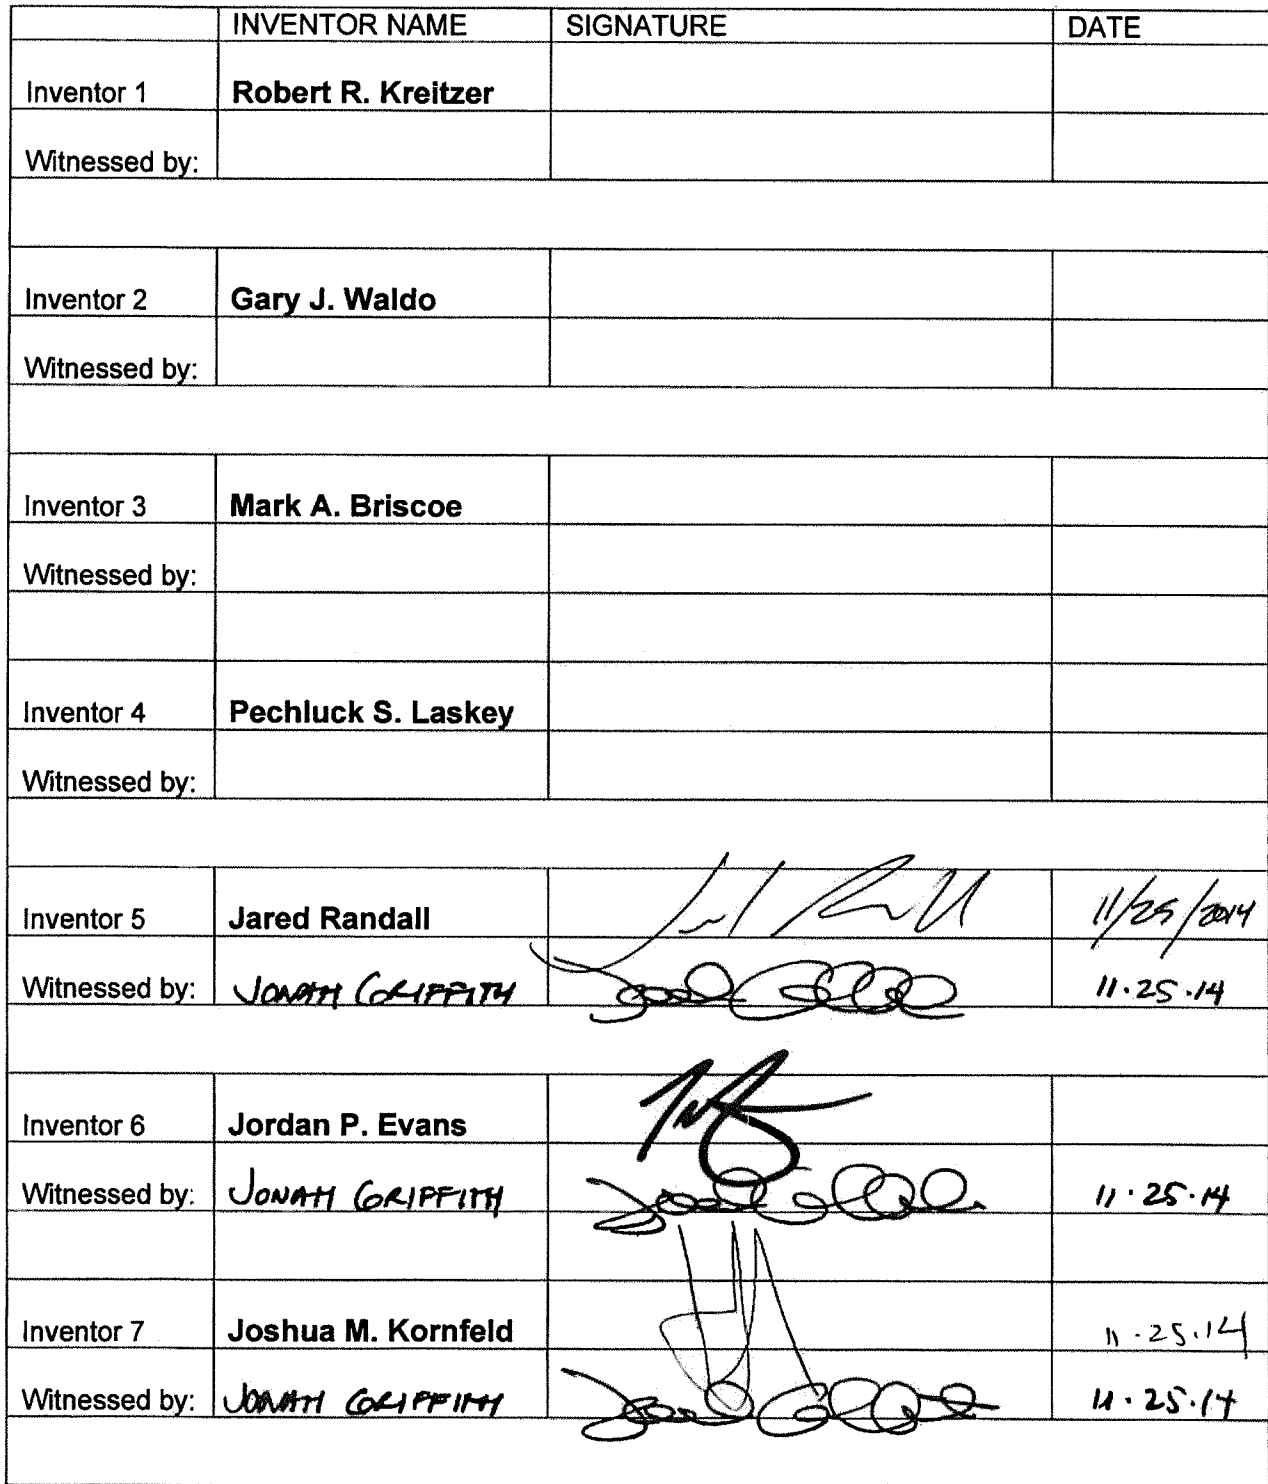 INVENTOR NAME SIGNATURE DATE
Inventor 1 Robert R. Kreitzer
Witnessed by:
Inventor 2 Gary J. Waldo
Witnessed by:
Inventor 3 Mark A. Briscoe
Witnessed by:
Inventor 4 Pechluck S. Laskey
Witnessed by:
Inventor 5 Jared Randall 11/25/2014
Witnessed by: JONAH GRIFFITH 11.25.14
Inventor 6 Jordan P. Evans
Witnessed by: JONAH GRIFFITH 11.25.14
Inventor 7 Joshua M. Kornfeld 11.25.14
Witnessed by: JONAH GRIFFITH 11.25.14